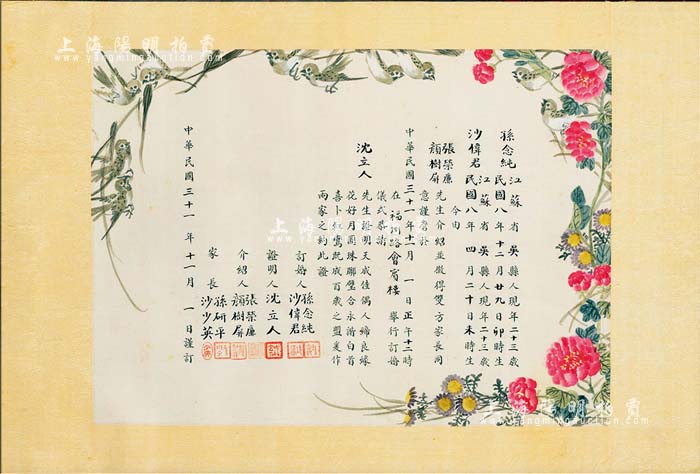 上海陽明拍賣
www.yangmingauction.com
孫念純 江蘇省吳縣人現年二十三歲
民國八年十二月廿九日卯時生
沙偉君 江蘇省吳縣人現年二十三歲
民國八年四月二十日未時生
今由
張榮廉
顏樹屏
先生介紹並徵得雙方家長同
意謹詹於
中華民國三十一年十一月一日正午十二時
在福州路會賓樓舉行訂婚
儀式恭請
沈立人
先生證明天成佳偶人締良緣
花好月圓珠聯璧合永諧白首
喜卜鳳鸞既成百歲之盟爰作
兩家之約此證
訂婚人 孫念純
沙偉君
證明人 沈立人
介紹人 張榮廉
顏樹屏
家長 孫研平
沙少英
中華民國三十一年十一月一日謹訂
上海陽明拍賣
上海陽明拍賣
www.yangmingauction.com